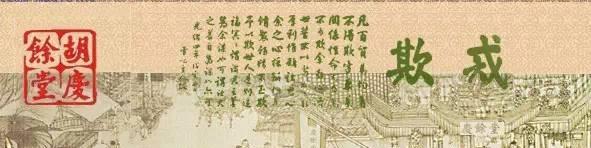 戒欺
凡百貿易均著
不得欺字藥業
關係性命尤為
萬不可欺余存心濟
世誓不以劣品弋
取厚利惟願諸君心
余之心採辦務真
修製務精不至欺
予以欺世人是則造
福冥冥謂諸君之善
為余謀也可謂諸君
之善自為謀也亦可
光緒四年
胡慶
餘堂
堂餘慶